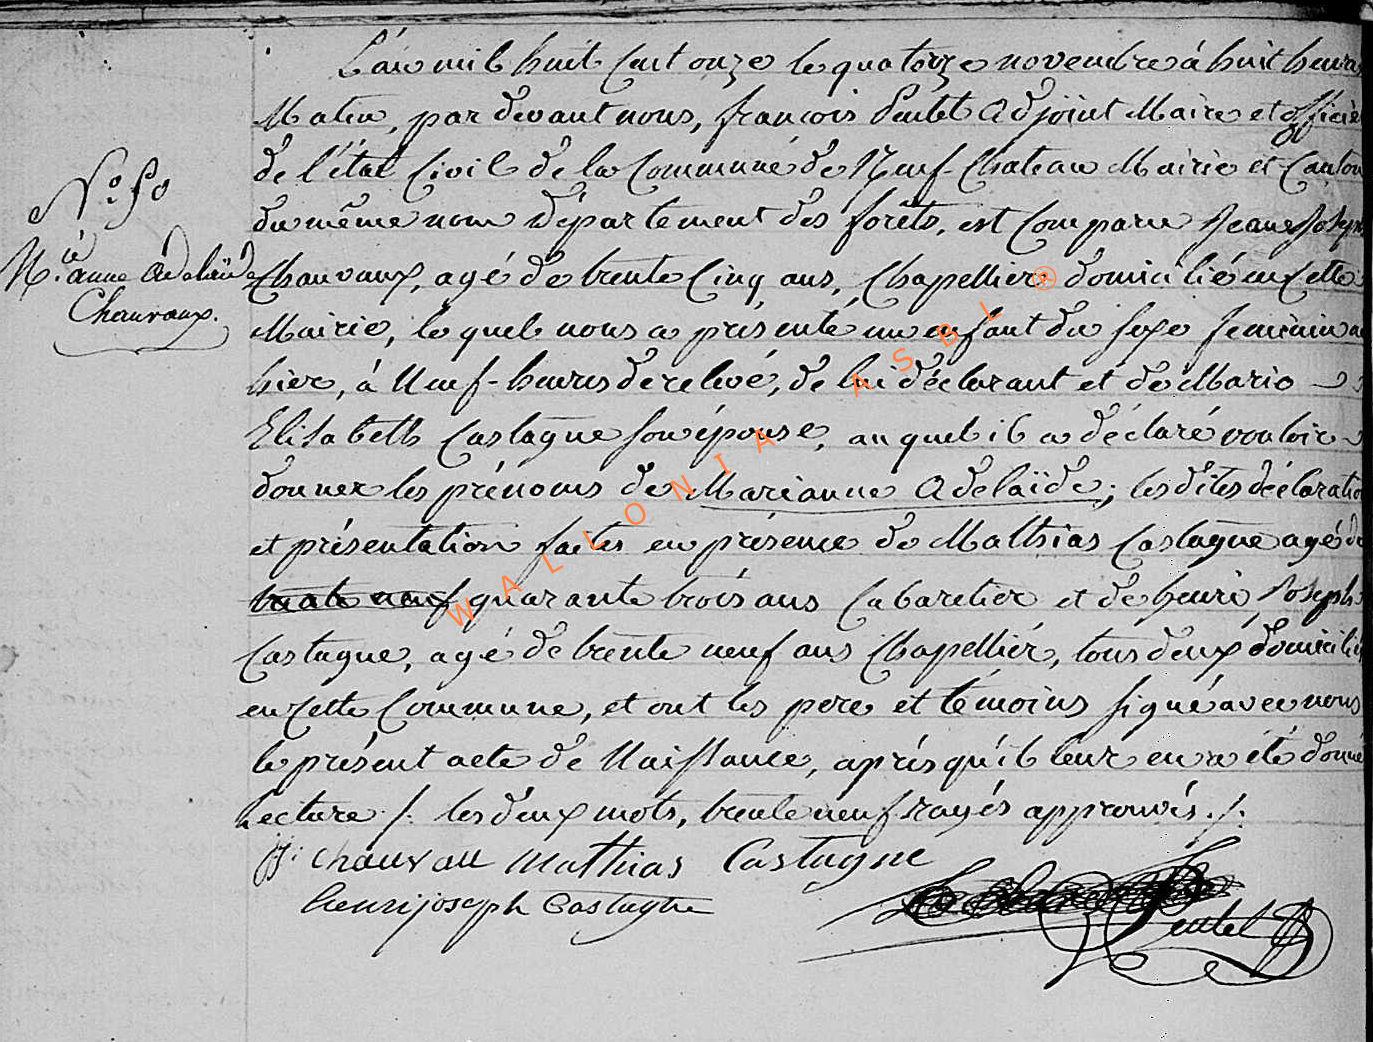 L'an mil huit cent onze le quatorze novembre à huit heures
Matin, par devant nous, françois Pentel Adjoint Maire et officier
de l'état Civil de la Commune de Neuf-Chateau Mairie et Canton
du même nom Département des forêts, est comparu Jean Joseph
N.° 50
M.ie anne Adelaïde
Chauvaux.
Chauvaux, agé de trente Cinq ans, Chapellier domicilié en Cette
Mairie, le quel nous a présenté un enfant du sexe feminin né
hier, à Neuf-heures de relevé, de lui déclarant et de Marie
Elisabeth Castagne son épouse, auquel il a déclaré vouloir
donner les prénoms de Marianne Adelaïde; les dites déclaration
et présentation faites en présence de Mathias Castagne agé de
trente neuf quarante trois ans Cabaretier et de henri Joseph
Castagne, agé de trente neuf ans Chapellier, tous deux domiciliés
en Cette Commune, et ont les pere et témoins signé avec nous
le présent acte de Naissance, après qu'il leur en a été donné
Lecture /. les deux mots, trente neuf rayés approuvés. /.
JJ: chauvau Mathias Castagne
henrijoseph Castagne
Pentel
WALLONIA ASBL ®